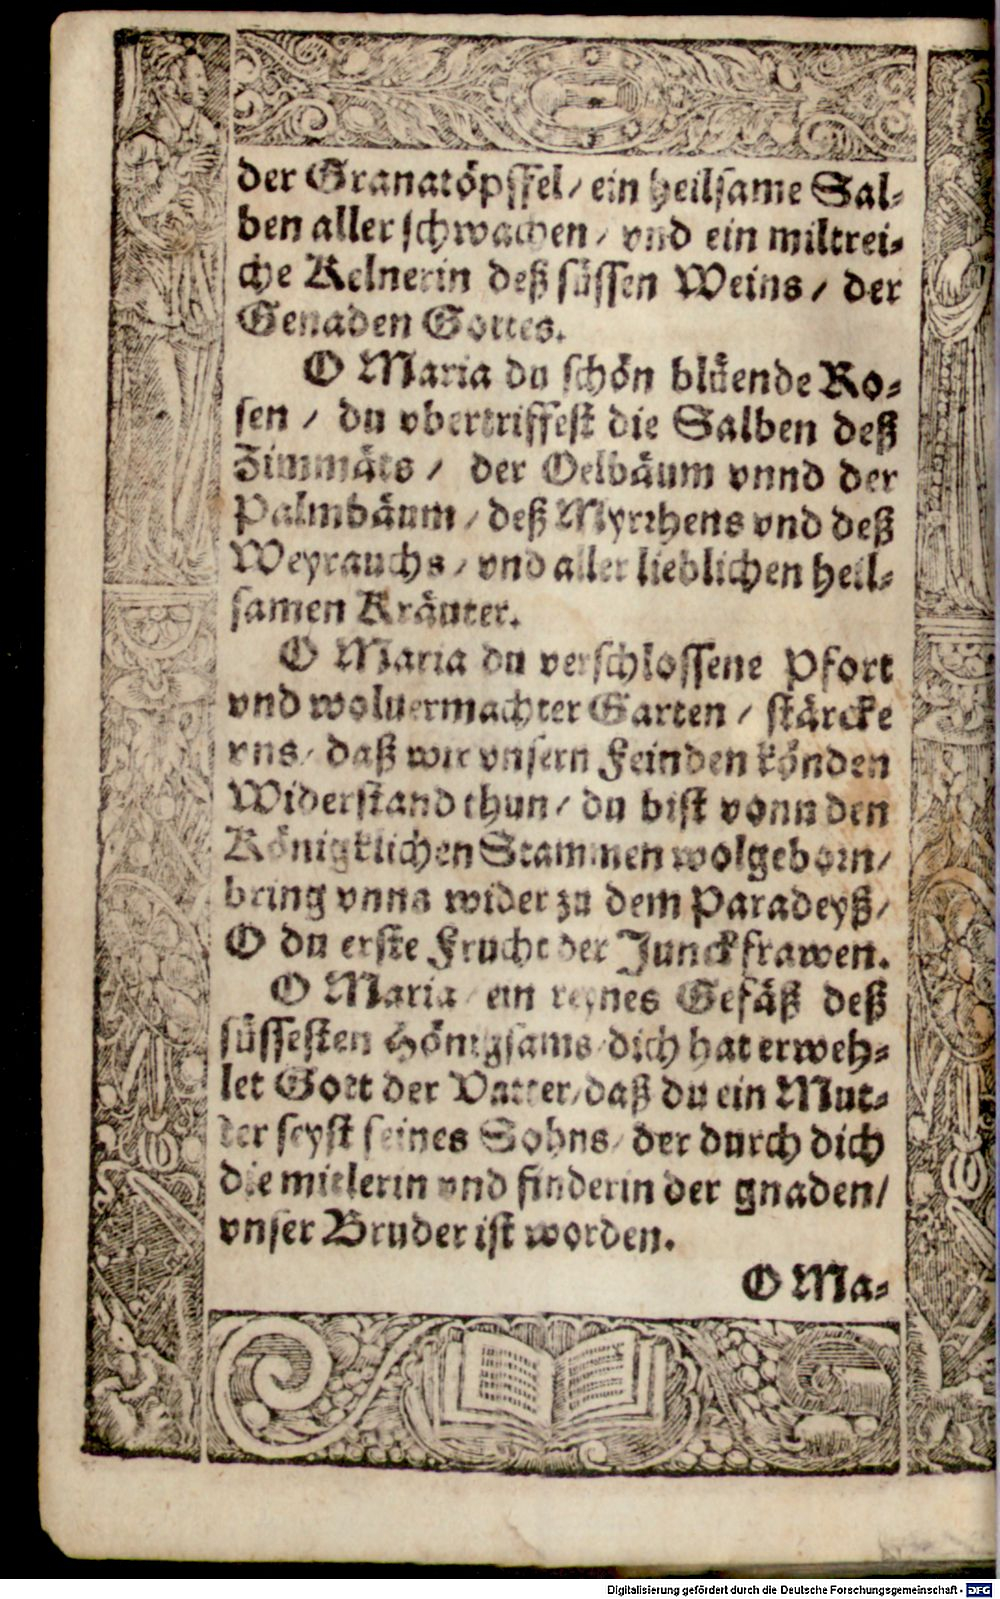 der Granatöpffel / ein heilsame Sal-
ben aller schwachen / vnd ein miltrei-
che Kelnerin deß süssen Weins / der
Genaden Gottes.
O Maria du schön blüende Ro-
sen / du vbertriffest die Salben deß
Zimmäts / der Oelbäum vnnd der
Palmbäum / deß Myrrhens vnd deß
Weyrauchs / vnd aller lieblichen heil-
samen Kräuter.
O Maria du verschlossene Pfort
vnd woluermachter Garten / stärcke
vns / daß wir vnsern Feinden könden
Widerstand thun / du bist vonn den
Königklichen Stammen wolgeborn /
bring vnns wider zu dem Paradeyß /
O du erste Frucht der Junckfrawen.
O Maria / ein reynes Gefäß deß
süssesten Hönigsams / dich hat erweh-
let Gott der Vatter / daß du ein Mut-
ter seyst seines Sohns / der durch dich
die mitlerin vnd finderin der gnaden /
vnser Bruder ist worden.
O Ma-
Digitalisierung gefördert durch die Deutsche Forschungsgemeinschaft - DFG